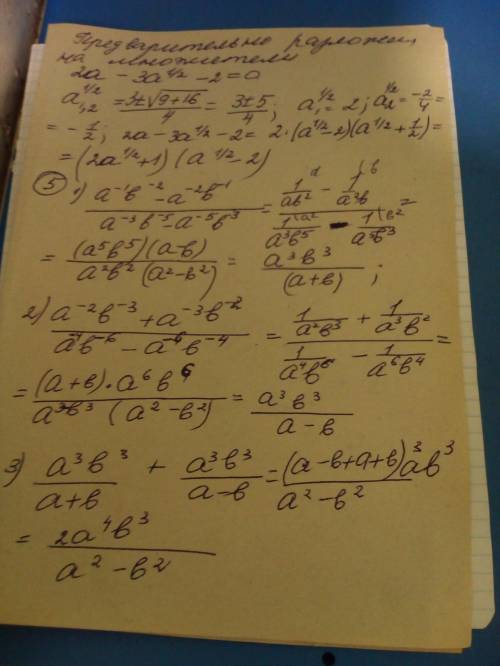 Предварительно разложен,
на множители
2a - 3a^{1/2} - 2 = 0
a^{1/2}_{1,2} = \frac{3±√9+16}{4} = \frac{3±5}{4}; a_1^{1/2} = 2; a_2^{1/2} = \frac{-2}{4} =
= -\frac{1}{2}; 2a - 3a^{1/2} - 2 = 2·(a^{1/2} - 2)(a^{1/2} + \frac{1}{2}) =
= (2a^{1/2} + 1)(a^{1/2} - 2)
⑤ 1) \frac{a^{-1}b^{-2} - a^{-2}b^{-1}}{a^{-3}b^{-5} - a^{-5}b^{3}} = \frac{\frac{1}{ab^2}^{\a} - \frac{1}{a^2b}^{\b}}{\frac{1}{a^3b^5}^{\a^2} - \frac{1}{a^5b^3}^{\b^2}} =
= \frac{(a^5b^5)(a-b)}{a^2b^2(a^2-b^2)} = \frac{a^3b^3}{(a+b)};
2) \frac{a^{-2}b^{-3} + a^{-3}b^{-2}}{a^{-4}b^{-6} - a^{-6}b^{-4}} = \frac{\frac{1}{a^2b^3} + \frac{1}{a^3b^2}}{\frac{1}{a^4b^6} - \frac{1}{a^6b^4}} =
= \frac{(a+b)·a^6b^6}{a^3b^3(a^2-b^2)} = \frac{a^3b^3}{a-b}
3) \frac{a^3b^3}{a+b} + \frac{a^3b^3}{a-b} = \frac{(a-b+a+b)a^3b^3}{a^2-b^2}
= \frac{2a^4b^3}{a^2-b^2}